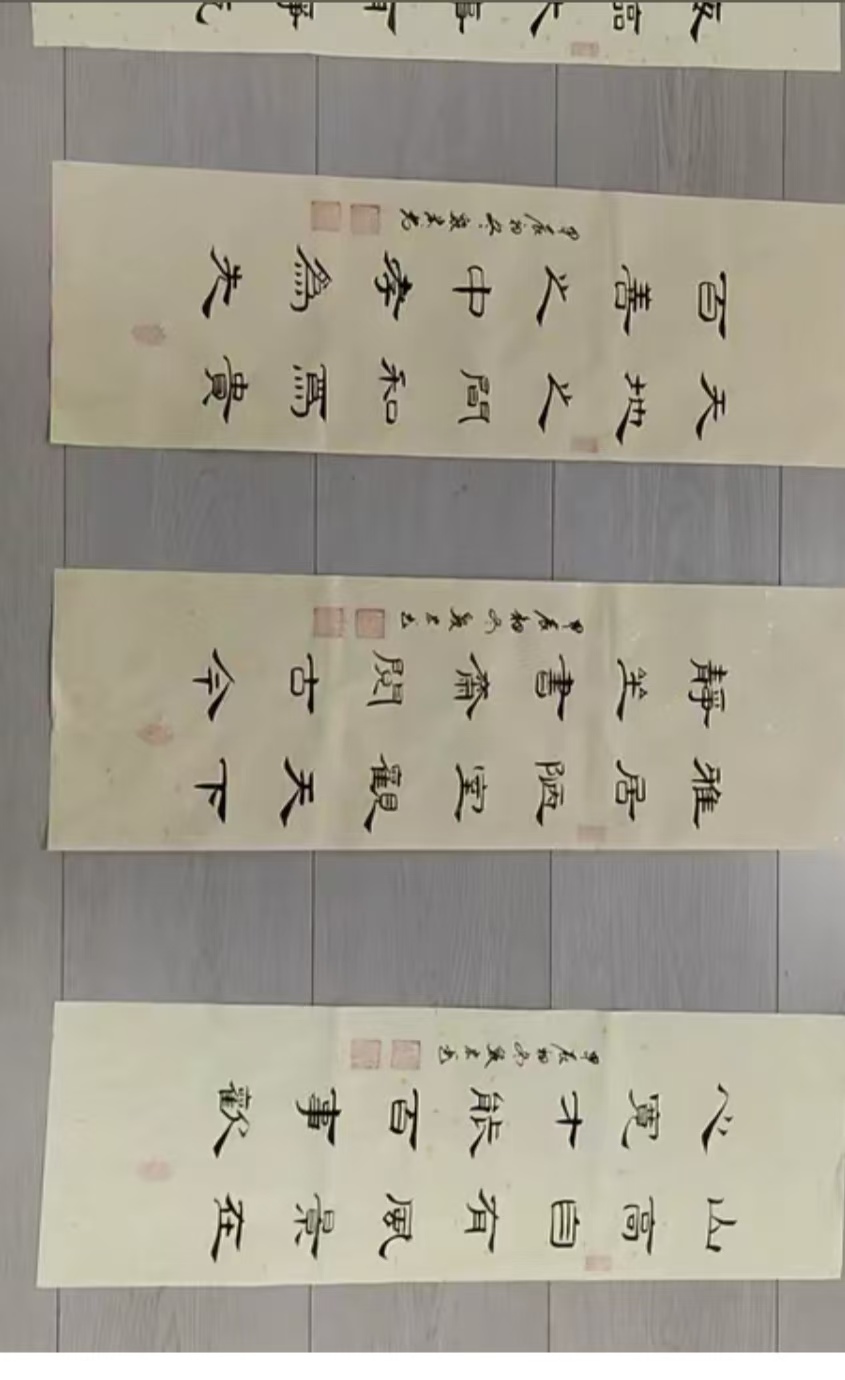 山高自有風景在
心寬才能百事歡
甲辰初冬
雅居陋室觀天下
靜坐書齋閱古今
甲辰初冬
天地之間和為貴
百善之中孝為先
甲辰初冬